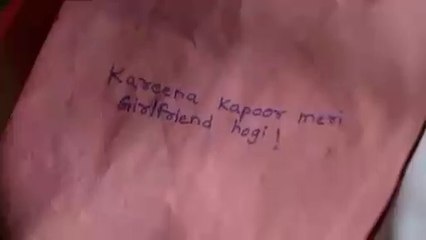 Kareena Kapoor meri
Girlfriend hogi!